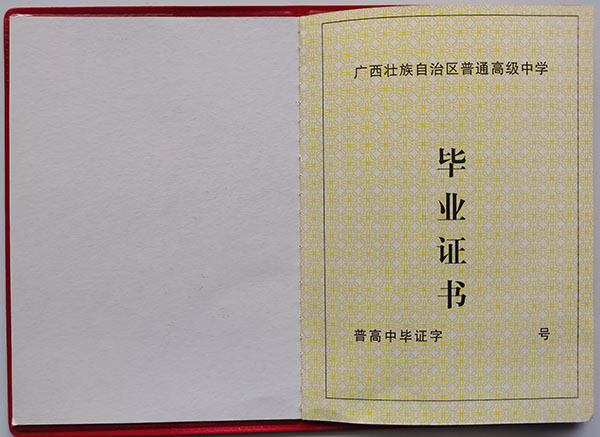 广西壮族自治区普通高级中学
毕业证书
普高中毕证字 号